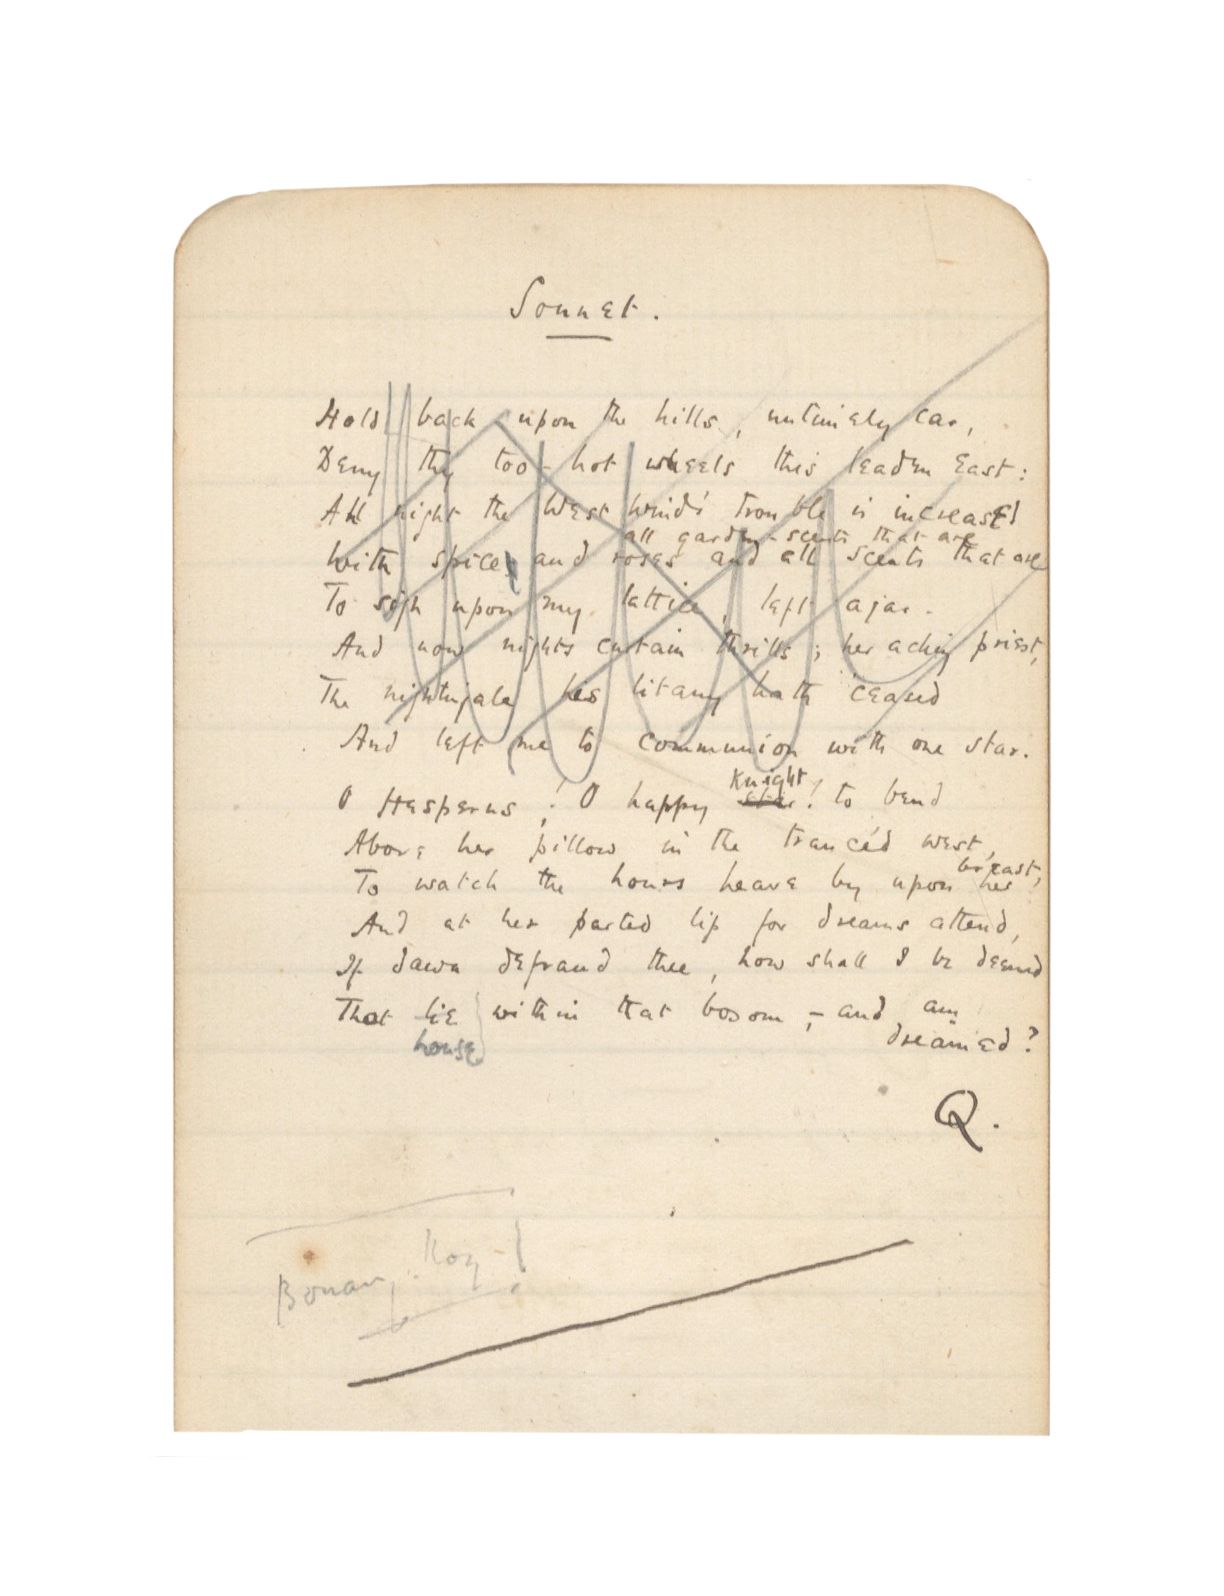 Sonnet.
Hold back upon the hills, untimely car,
Deny thy too-hot wheels this leaden East:
All night the West Wind's trouble is increas'd
all garden-scents that are
With spice, and roses and all scents that are
To sigh upon my lattice, left ajar.
And now night's curtain thrills; her aching priest,
The nightingale his litany hath ceased
And left me to communion with one star.
Knight
O Hesperus! O happy star! to bend
Above her pillow in the trancéd west,
breast,
To watch the hours heave by upon her
And at her parted lip for dreams attend,
If dawn defraud thee, how shall I be deemed
That lie within that bosom,- and am
house
dreamed?
Q.